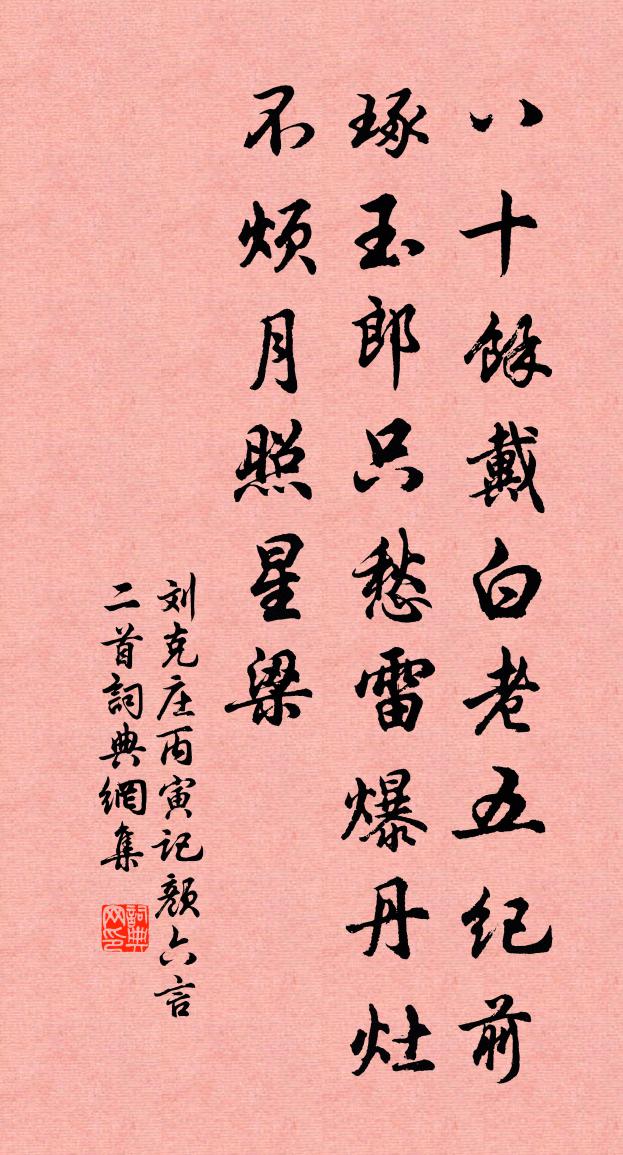 八十餘戴白老五纪前
琢玉郎只愁雷爆丹灶
不烦月照星梁
刘克庄丙寅记颜六言
二首詞典網集
詞典网印